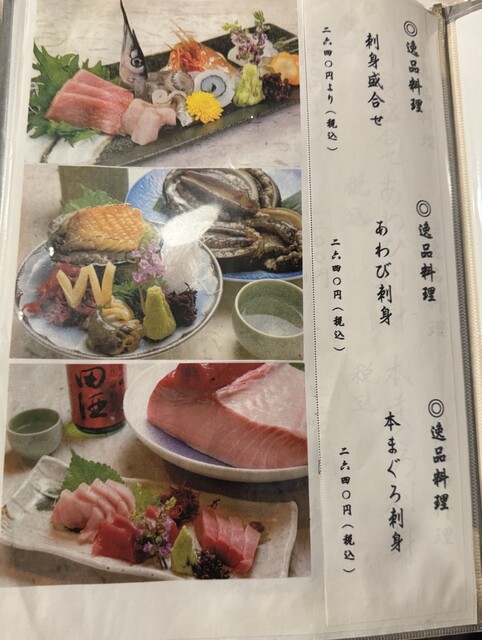 ◎逸品料理
刺身盛合せ
二六四〇円より(税込)
◎逸品料理
あわび刺身
二六四〇円(税込)
◎逸品料理
本まぐろ刺身
二六四〇円(税込)
田酒